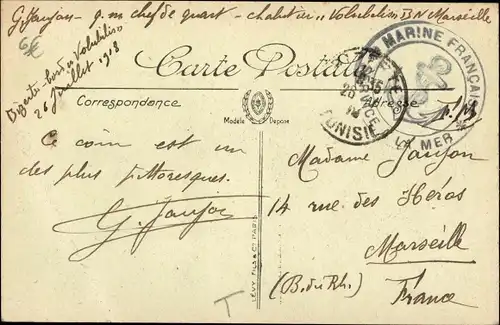 G. Jaujon - q.m chef de quart - chalutier "Volubilis" BN Marseille
6€
Bizerte bord "Volubilis"
26 juillet 1918
Carte Postale
Correspondance
Adresse
Modèle Déposé
MARINE FRANÇAISE
LA MER
TUNISIE
Ce coin est un
des plus pittoresques.
G. Jaujon
Madame Jaujon
14 rue des Héros
Marseille
(B. du Rh.)
France
LÉVY FILS & Cie PARIS
T